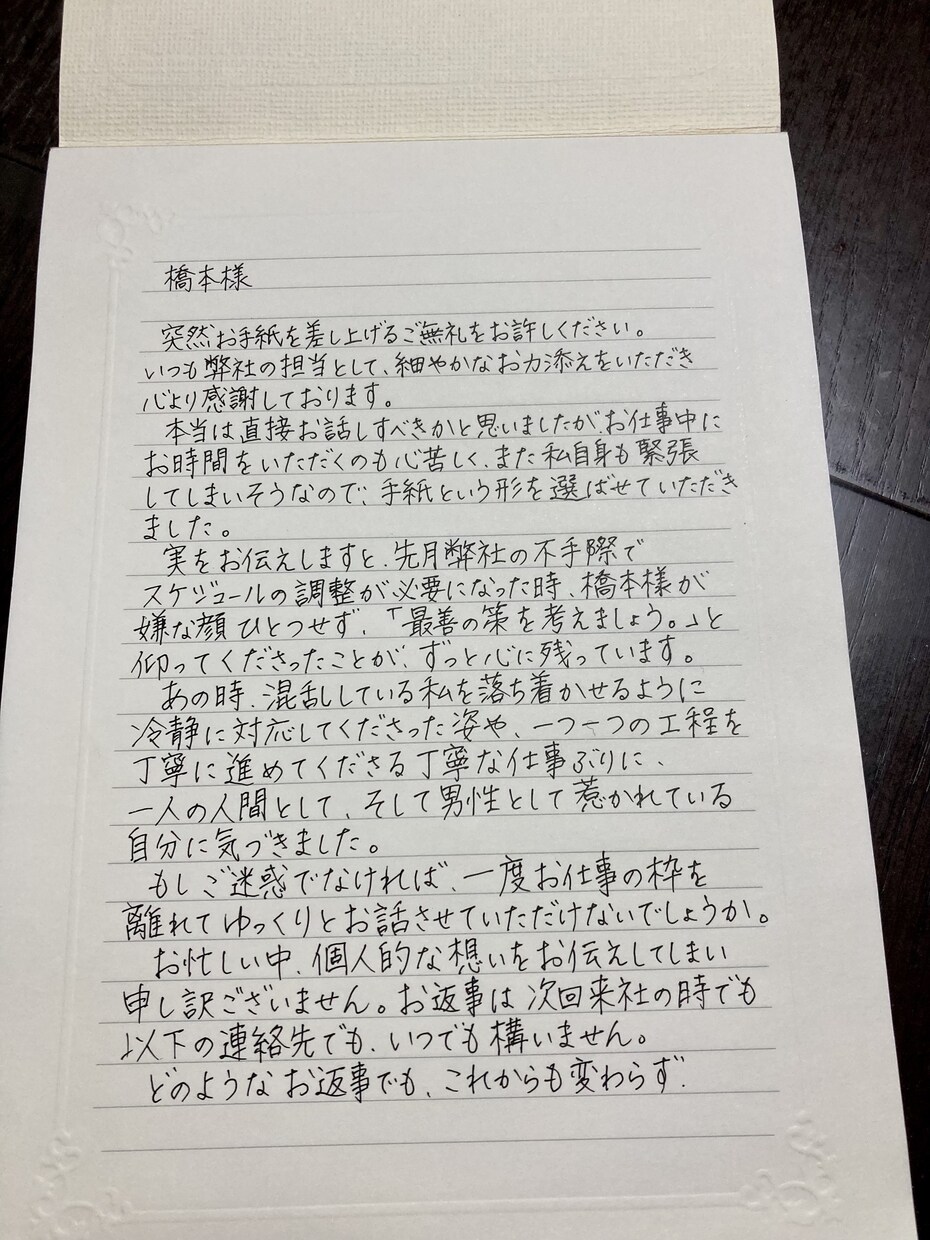 橋本様
突然お手紙を差し上げるご無礼をお許しください。
いつも弊社の担当として、細やかなお力添えをいただき
心より感謝しております。
本当は直接お話しすべきかと思いましたが、お仕事中に
お時間をいただくのも心苦しく、また私自身も緊張
してしまいそうなので、手紙という形を選ばせていただき
ました。
実をお伝えしますと、先月弊社の不手際で
スケジュールの調整が必要になった時、橋本様が
嫌な顔ひとつせず、「最善の策を考えましょう。」と
仰ってくださったことが、ずっと心に残っています。
あの時、混乱している私を落ち着かせるように
冷静に対応してくださった姿や、一つ一つの工程を
丁寧に進めてくださる丁寧な仕事ぶりに、
一人の人間として、そして男性として惹かれている
自分に気づきました。
もしご迷惑でなければ、一度お仕事の枠を
離れてゆっくりとお話させていただけないでしょうか。
お忙しい中、個人的な想いをお伝えしてしまい
申し訳ございません。お返事は次回来社の時でも
以下の連絡先でも、いつでも構いません。
どのようなお返事でも、これからも変わらず、